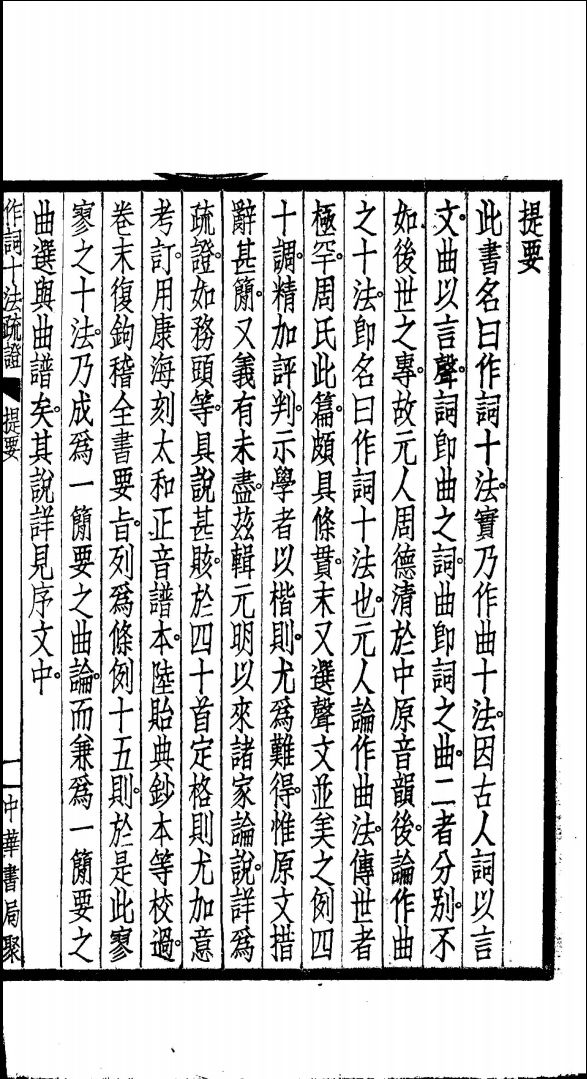 提要
此書名曰作詞十法。實乃作曲十法。因古人詞以言
文。曲以言聲。詞卽曲之詞。曲卽詞之曲。二者分別。不
如後世之專。故元人周德清於中原音韻後。論作曲
之十法。卽名曰作詞十法也。元人論作曲法。傳世者
極罕。周氏此篇。頗具條貫。末又選聲文並美之例四
十調。精加評判。示學者以楷則。尤爲難得。惟原文措
辭甚簡。又義有未盡。茲輯元明以來諸家論說。詳爲
疏證。如務頭等。具說甚賅。於四十首定格則尤加意
考訂。用康海刻太和正音譜本。陸貽典鈔本等校過。
卷末復鉤稽全書要旨。列爲條例十五則。於是此寥
寥之十法。乃成爲一簡要之曲論。而兼爲一簡要之
曲選與曲譜矣。其說詳見序文中。
作詞十法疏證 提要 一 中華書局聚